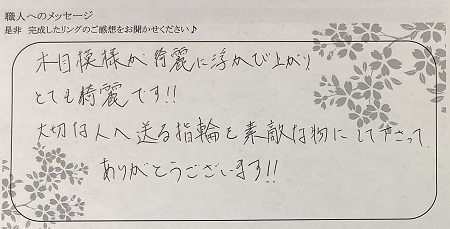 職人へのメッセージ
是非 完成したリングのご感想をお聞かせください♪
木目模様が綺麗に浮かび上がり
とても綺麗です!!
大切な人へ送る指輪を素敵な物にして下さって
ありがとうございます!!